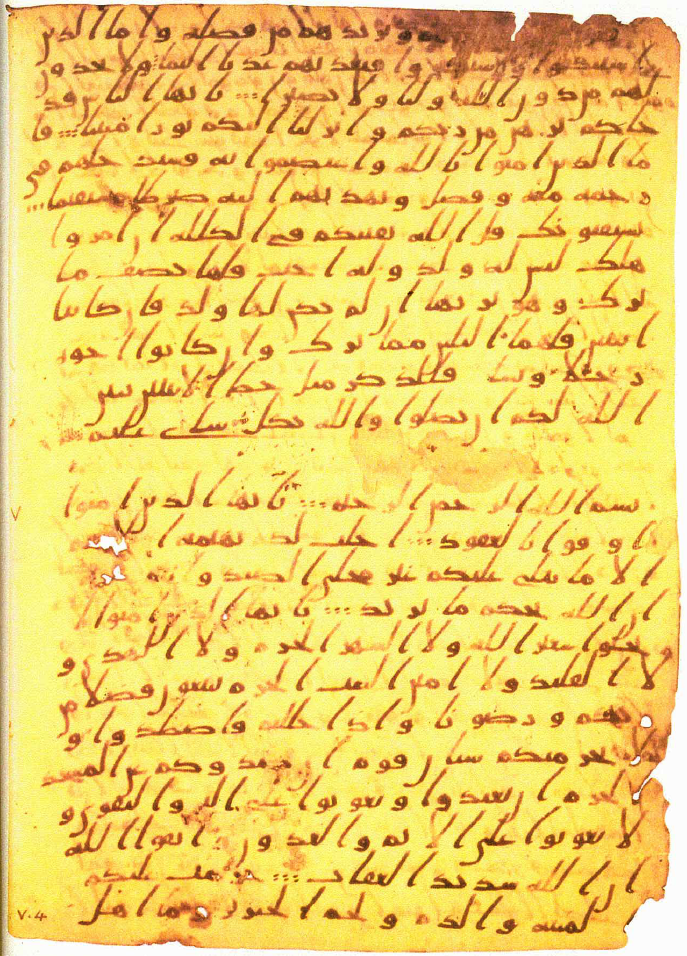 ويزيدهم من فضله واما الذين
استنكفوا واستكبروا فيعذبهم عذابا اليما ولا يجدون
لهم من دون الله وليا ولا نصيرا ∴ يايها الناس قد
جاكم برهن من ربكم وانزلنا اليكم نورا مبينا ∴ فا
ما الذين امنوا بالله واعتصموا به فسيدخلهم في
رحمة منه وفضل ويهديهم اليه صرطا مستقيما ∴
يستفتونك قل الله يفتيكم في الكللة ان امروا
هلك ليس له ولد وله اخت فلها نصف ما
ترك وهو يرثها ان لم يكن لها ولد فان كانتا
اثنتين فلهما الثلثن مما ترك وان كانوا اخوة
رجالا ونسا فللذكر مثل حظ الانثيين يبين
الله لكم ان تضلوا والله بكل شى عليم
بسم الله الرحمن الرحيم ∴ يايها الذين امنوا
اوفوا بالعقود ∴ احلت لكم بهيمة
الا ما يتلى عليكم غير محلى الصيد
ان الله يحكم ما يريد ∴ يايها الذين امنوا لا
تحلوا شعير الله ولا الشهر الحرم ولا الهدى و
لا القليد ولا امين البيت الحرم يبتغون فضلا من
ربهم ورضونا واذا حللتم فاصطدوا و
لا يجرمنكم شنان قوم ان صدوكم عن المسجد
الحرم ان تعتدوا وتعونوا على البر والتقوى و
لا تعونوا على الاثم والعدون واتقوا الله
ان الله شديد العقاب ∴ حرمت عليكم
الميتة والدم ولحم الخنزير وما اهل
v.4